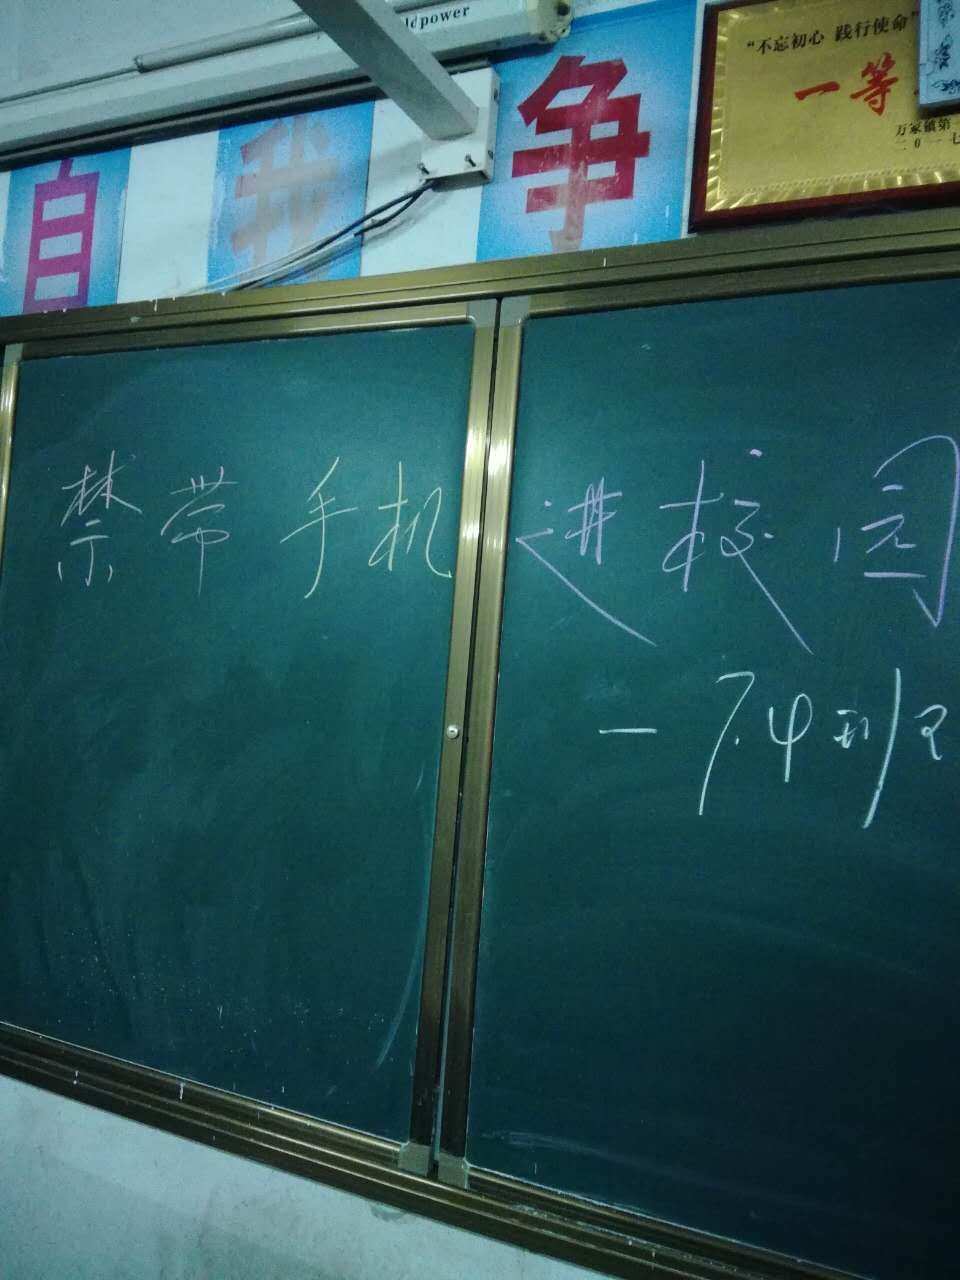 ldpower
自我争
"不忘初心 践行使命"
一等
万家镇第一
二0一七
禁带手机进校园
一7.4班